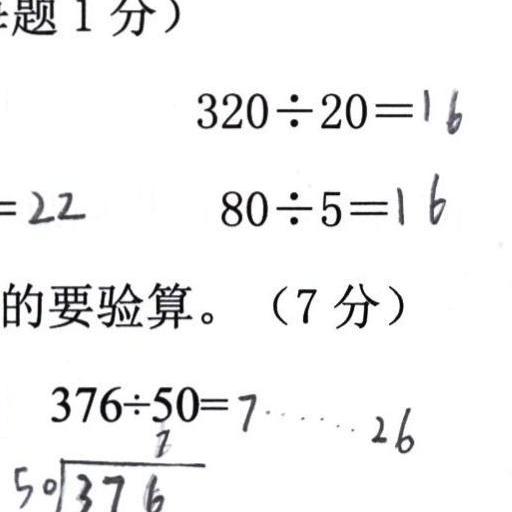 题 1 分）
320÷20=16
=22 80÷5=16
的要验算。（7 分）
376÷50=7……26
7
50 376